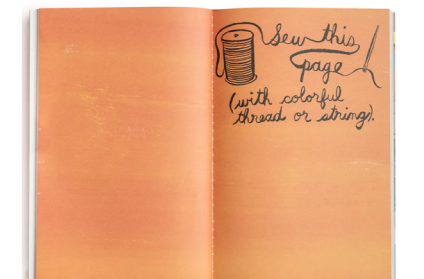 Sew this
page
(with colorful
thread or string).